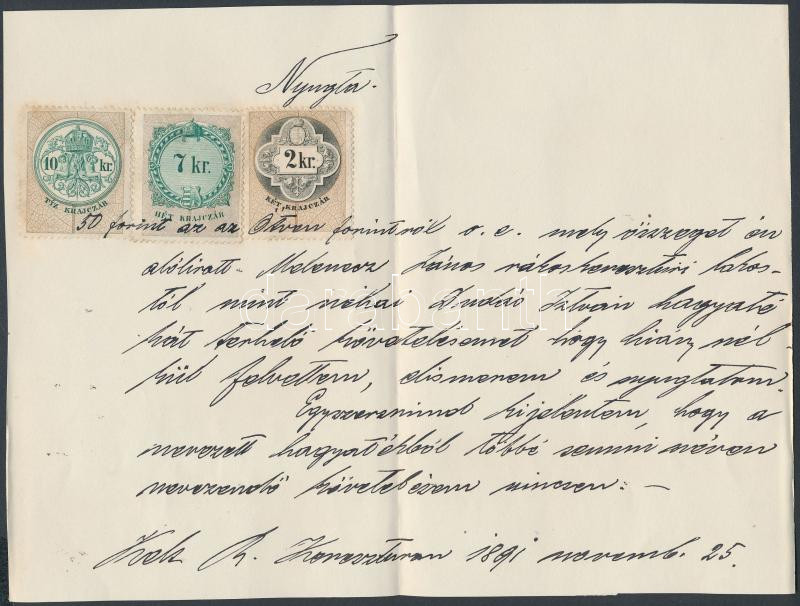 Nyugta.
10 kr.
TIZ KRAJCZÁR
7 kr.
HÉT KRAJCZÁR
2 kr.
KÉT KRAJCZÁR
50 forint az az Ötven forintról o. é. mely összeget én
alólirott Melenecz János rákoskereszturi lakos-
tól mint néhai István hagyaté
kát terhelő követelésemet hogy hiány nél-
kül felvettem, elismerem és nyugtatom.
Egyszersmind kijelentem, hogy a
nevezett hagyatékból többé semmi néven
nevezendő követelésem nincsen. —
Kelt R. Kereszturon 1891 novemb. 25.
darabanth